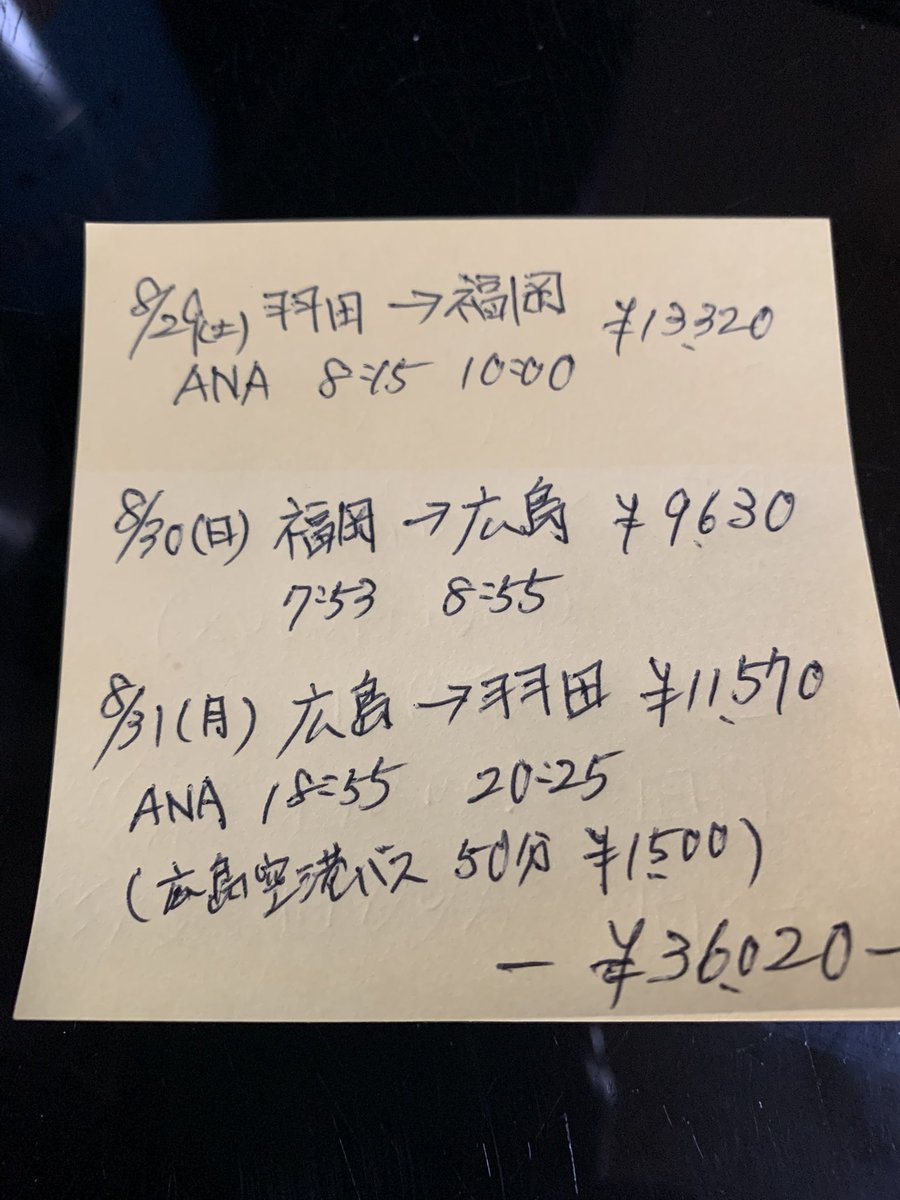 8/29(土) 羽田→福岡 ¥13,320
ANA 8:15 10:00
8/30(日) 福岡→広島 ¥9,630
7:53 8:55
8/31(月) 広島→羽田 ¥11,570
ANA 18:55 20:25
(広島空港バス 50分 ¥1,500)
— ¥36,020 —